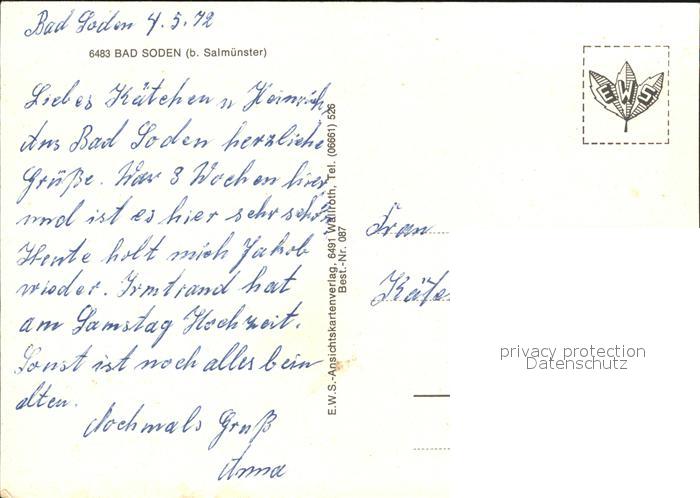 Bad Soden 4.5.72
6483 BAD SODEN (b. Salmünster)
Liebes Kätchen u Heinrich,
Aus Bad Soden herzliche
Grüße. War 3 Wochen hier
und ist es hier sehr schön
Heute holt mich Jakob
wieder. Irmtraud hat
am Samstag Hochzeit.
Sonst ist noch alles beim
alten.
Nochmals Gruß
Anna
E.W.S.-Ansichtskartenverlag, 6491 Wallroth, Tel. (06661) 526
Best.-Nr. 087
EWS
Frau
Käte
privacy protection
Datenschutz